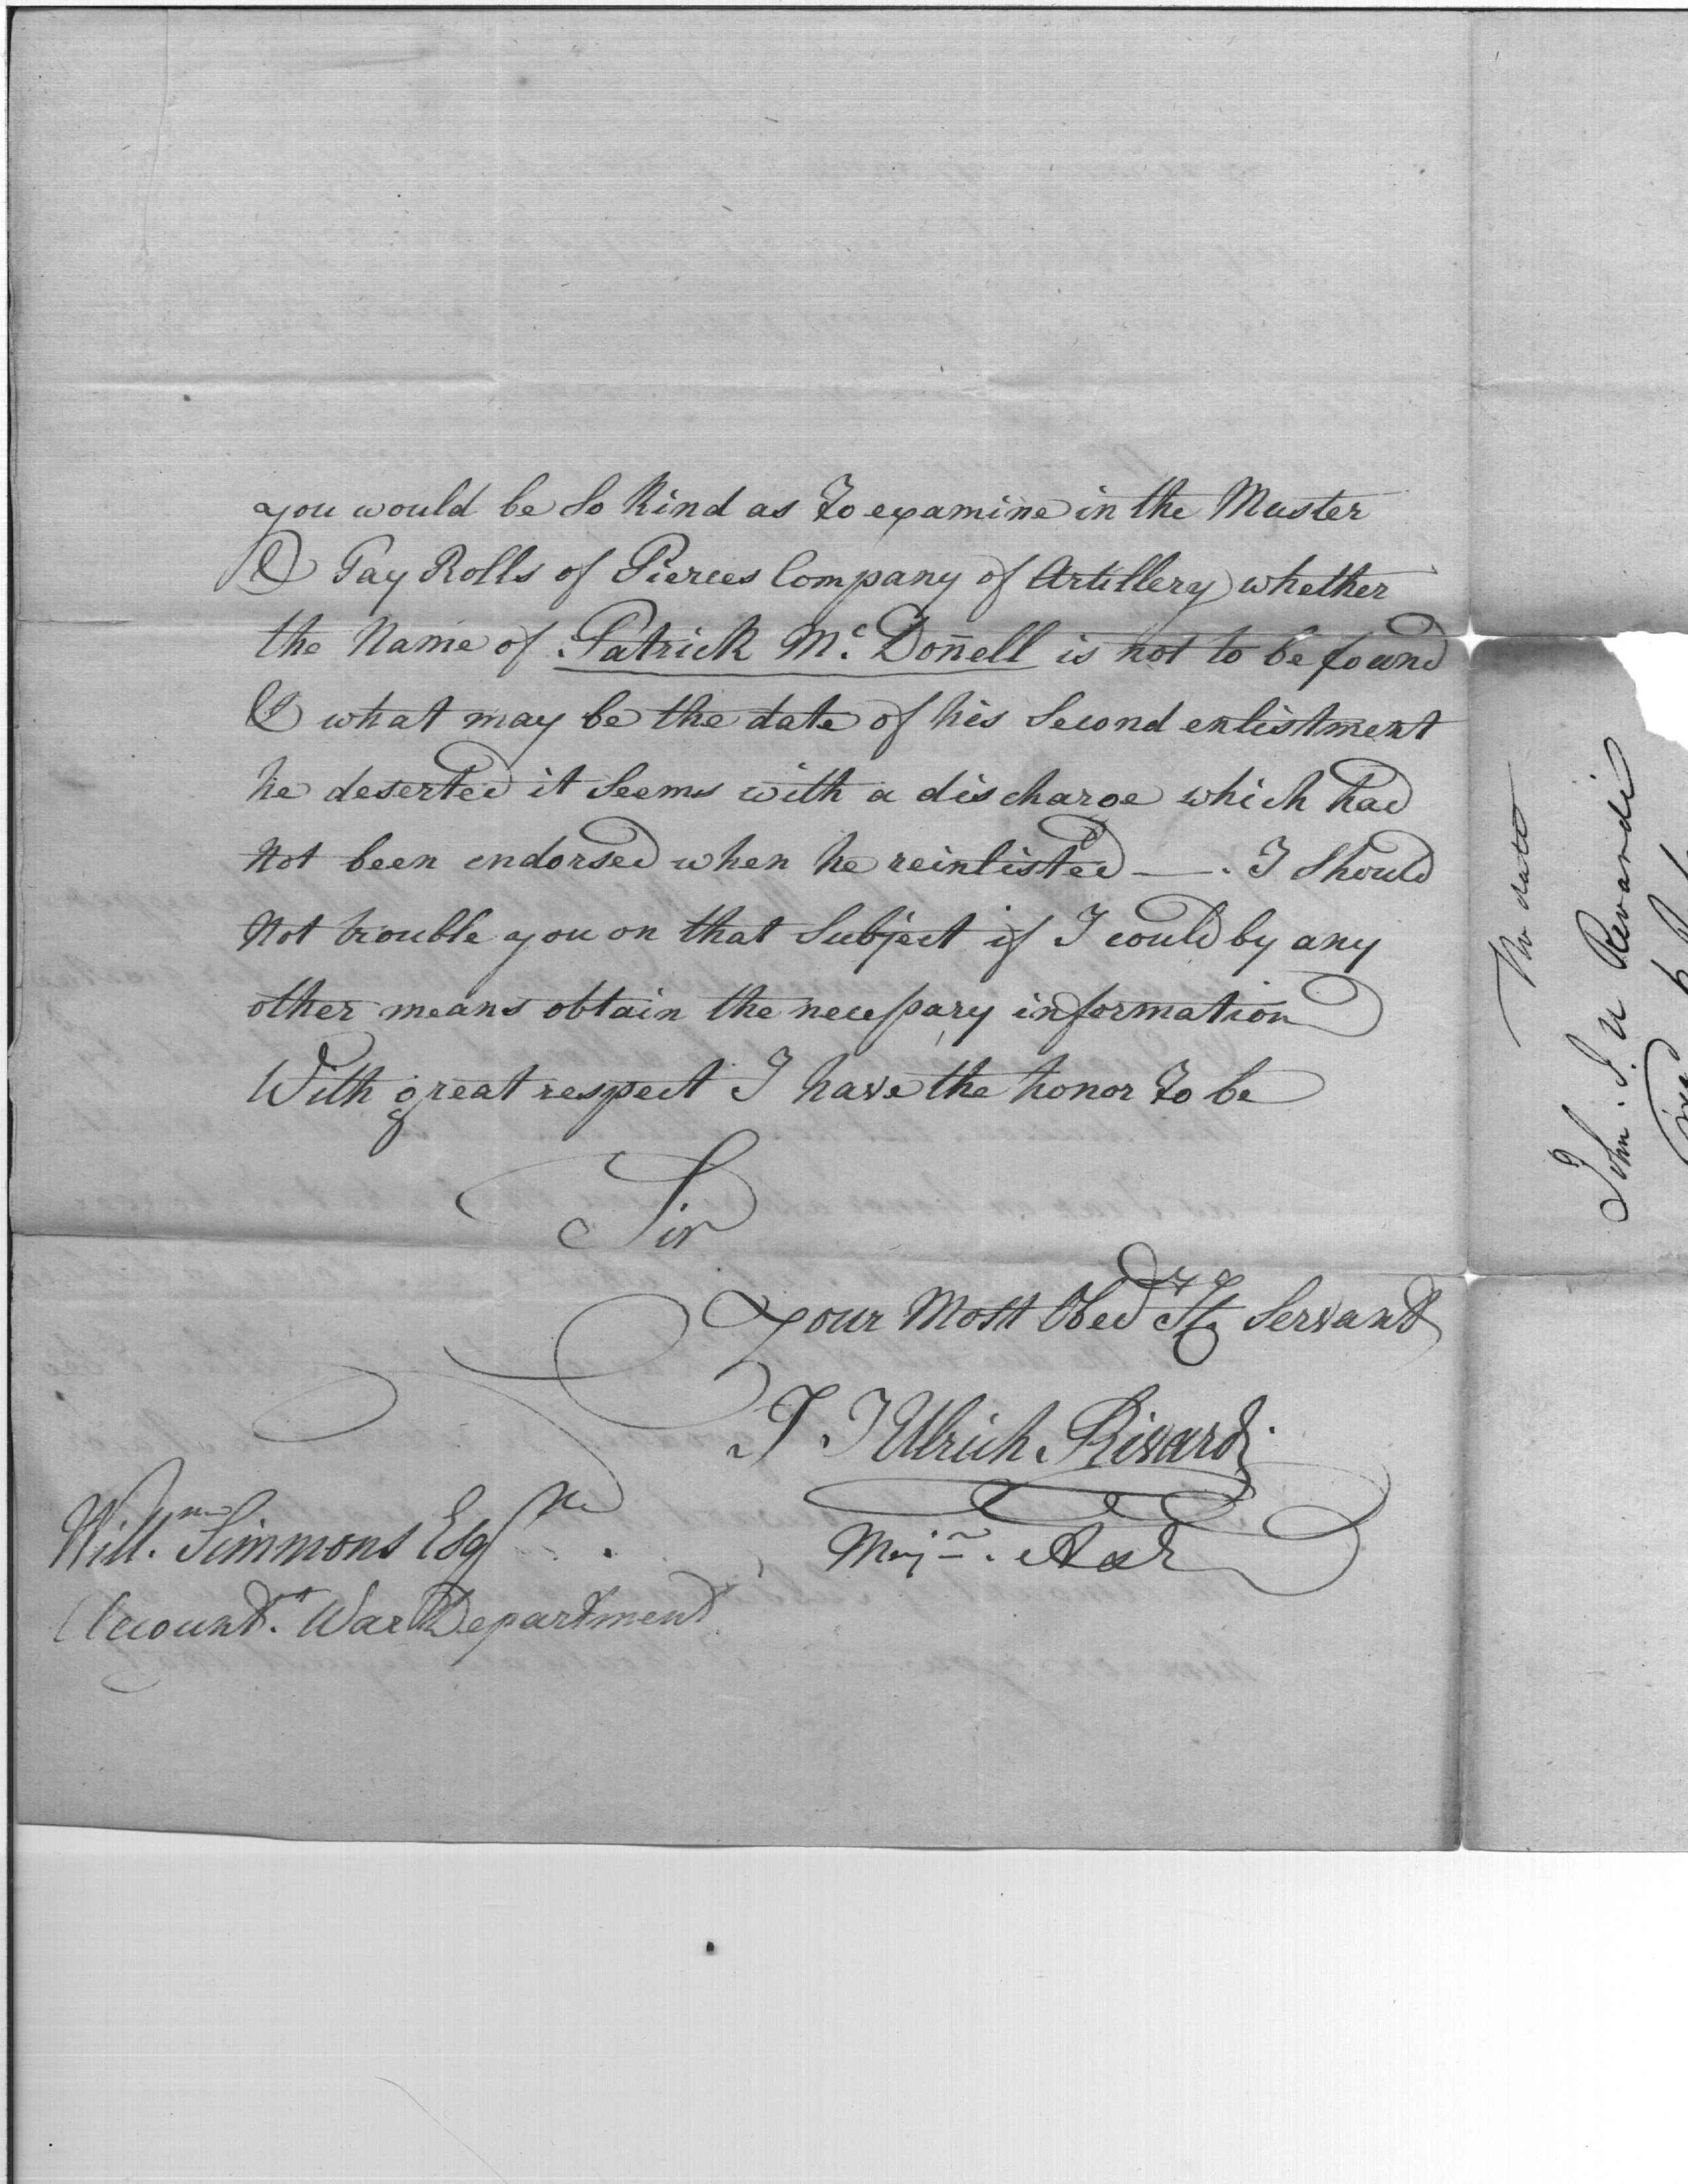 you would be so kind as to examine in the Muster
& Pay Rolls of Pierces Company of Artillery whether
the Name of Patrick Mc. Doñell is not to be found
& what may be the date of his Second enlistment
he deserted it seems with a discharge which had
not been endorsed when he reinlisted —. I Should
not trouble you on that Subject if I could by any
other means obtain the necessary information
With great respect I have the honor to be
Sir
Your Most Obed Servant
J J Ulrich Rivardi
Majr. A&E
Willm. Simmons Esqre
Accountt. War Department
No date
John. J. U Rivardi